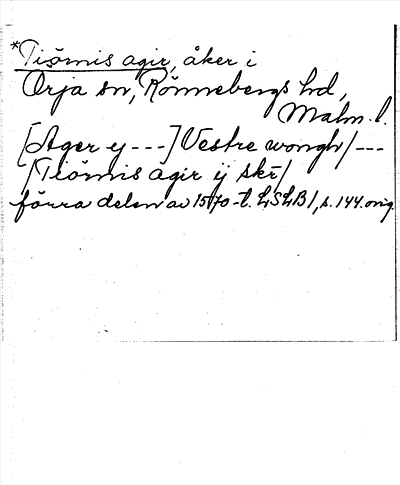 *Tiörnis agir, åker i
Örja sn, Rönnebergs hd,
Malm. l.
[Ager ij ---] Vestre wongh/ ---
/Tiörnis agir ij skr/
förra delen av 1570-t. LSLB1, s. 144. orig.